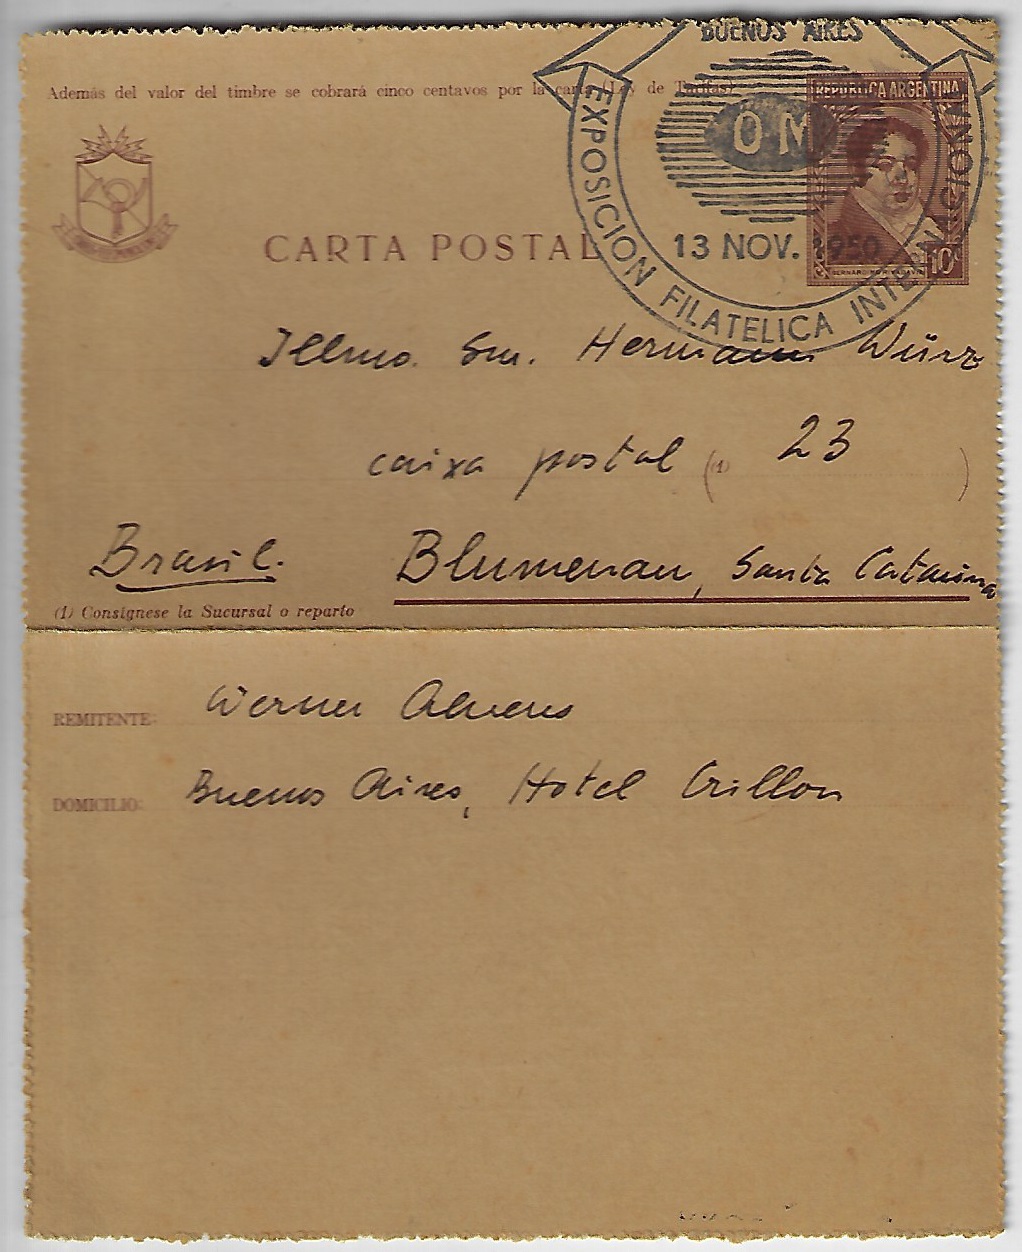 BUENOS AIRES
Además del valor del timbre se cobrará cinco centavos por la carta (Ley de Tarifas)
REPUBLICA ARGENTINA
O M
EXPOSICION FILATELICA INTERNACIONAL
13 NOV. 1950
10c
BERNARDINO RIVADAVIA
CARTA POSTAL
Illmo. Snr. Hermann Würz
caixa postal (1) 23 )
Brasil. Blumenau, Santa Catarina
(1) Consígnese la Sucursal o reparto
REMITENTE: Werner Ahrens
DOMICILIO: Buenos Aires, Hotel Crillon